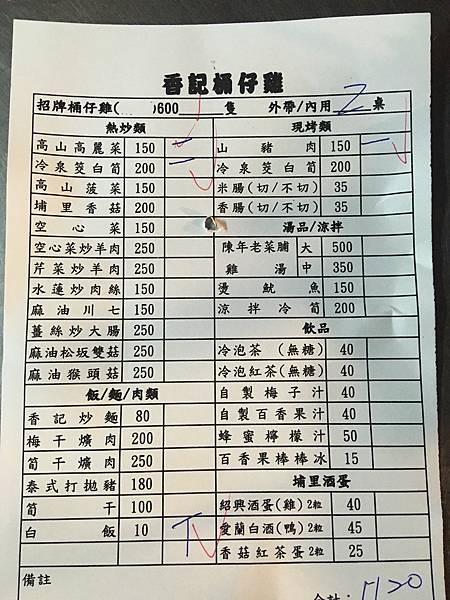 香記桶仔雞
招牌桶仔雞( )600 隻 外帶/內用 2 桌
熱炒類
高山高麗菜 150 一
冷泉筊白筍 200 一
高山菠菜 150
埔里香菇 200
空心菜 150
空心菜炒羊肉 250
芹菜炒羊肉 250
水蓮炒肉絲 150
麻油川七 150
薑絲炒大腸 250
麻油松坂雙菇 250
麻油猴頭菇 250
飯/麵/肉類
香記炒麵 80
梅干爌肉 200
筍干爌肉 250
泰式打拋豬 180
筍干 100
白飯 10
現烤類
山豬肉 150 一
冷泉筊白筍 200
米腸(切/不切) 35
香腸(切/不切) 35
湯品/涼拌
陳年老菜脯雞湯 大 500
中 350
燙魷魚 150
涼拌冷筍 200
飲品
冷泡茶 (無糖) 40
冷泡紅茶(無糖) 40
自製梅子汁 40
自製百香果汁 40
蜂蜜檸檬汁 50
百香果棒棒冰 15
埔里酒蛋
紹興酒蛋(雞)2粒 40
愛蘭白酒(鴨)2粒 45
香菇紅茶蛋2粒 25
備註
合計: 1120